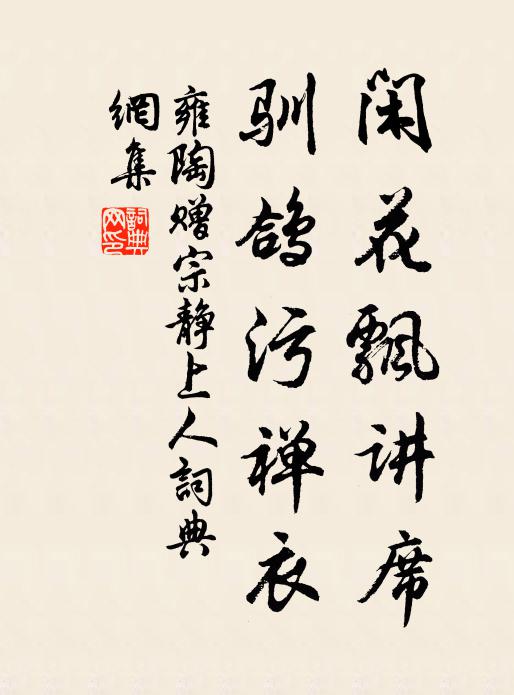 闲花飘讲席
驯鸽污禅衣
雍陶赠宗静上人詞典
網集
詞典
网印